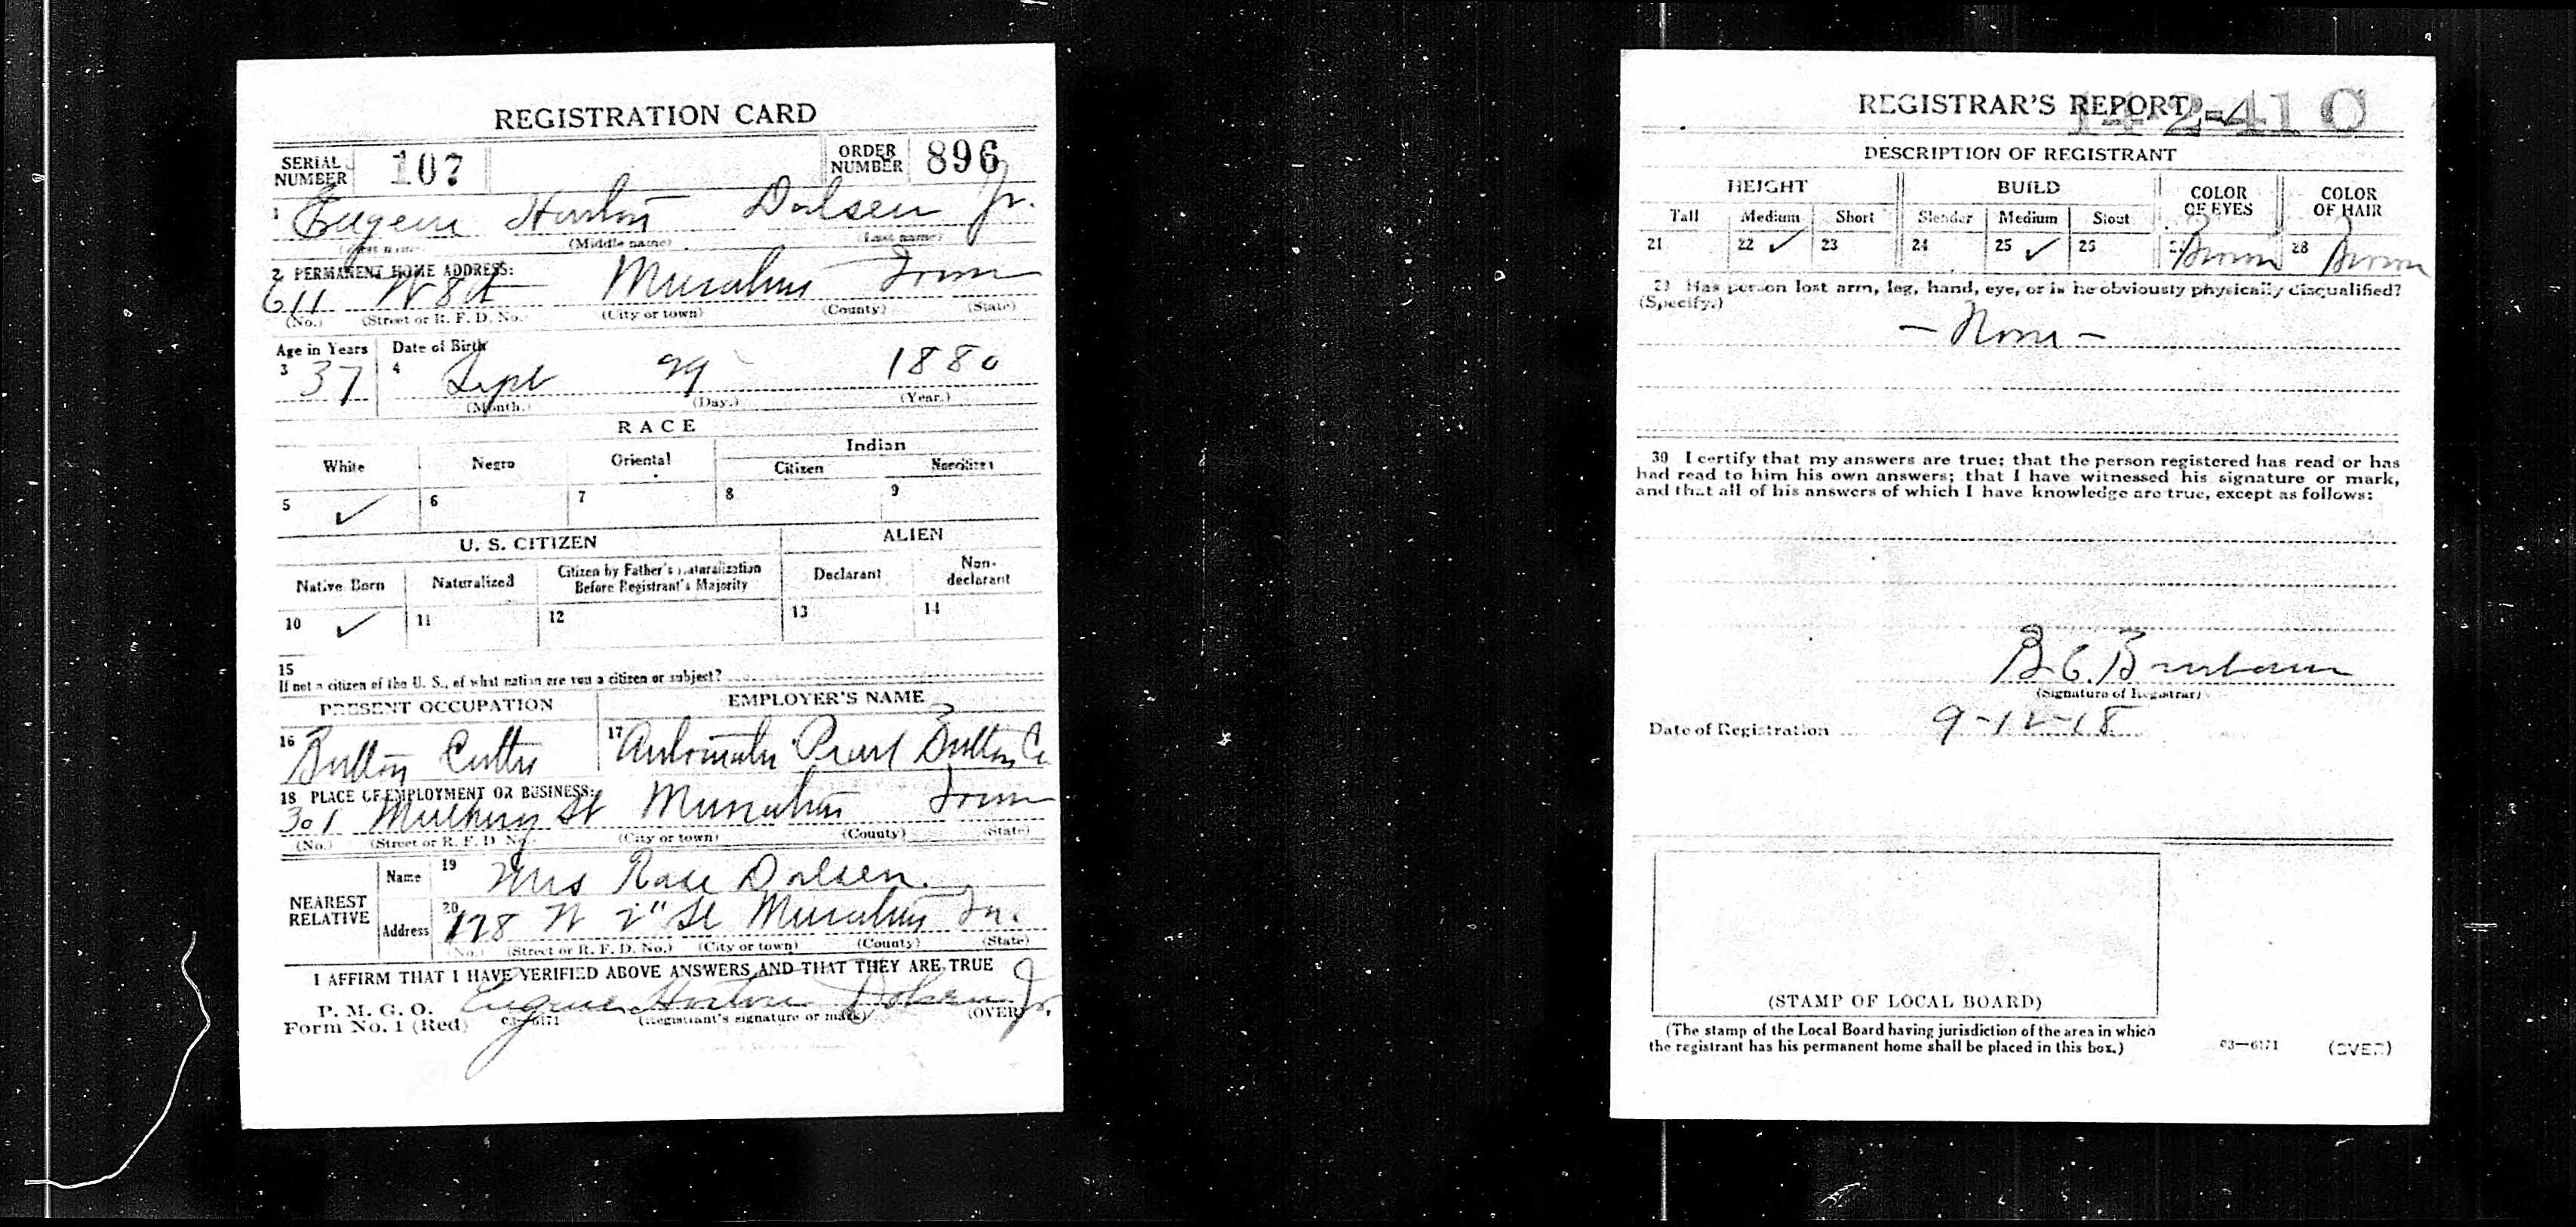 REGISTRATION CARD
SERIAL NUMBER 107 ORDER NUMBER 896
1 Eugene Horton Dolsen Jr.
(First name) (Middle name) (Last name)
2 PERMANENT HOME ADDRESS:
611 W 8th Muscatine Iowa
(No.) (Street or R. F. D. No.) (City or town) (County) (State)
Age in Years Date of Birth
3 37 4 Sept 29 1880
(Month.) (Day.) (Year.)
RACE
White Negro Oriental Indian
Citizen Noncitizen
5 ✓ 6 7 8 9
U. S. CITIZEN ALIEN
Native Born Naturalized Citizen by Father's Naturalization Before Registrant's Majority Declarant Non-declarant
10 ✓ 11 12 13 14
15
If not a citizen of the U. S., of what nation are you a citizen or subject?
PRESENT OCCUPATION EMPLOYER'S NAME
16 Button Cutter 17 Automatic Pearl Button Co
18 PLACE OF EMPLOYMENT OR BUSINESS:
301 Mulberry St Muscatine Iowa
(No.) (Street or R. F. D. No.) (City or town) (County) (State)
NEAREST RELATIVE
Name 19 Mrs Rose Dolsen.
Address 20 178 W 2" St Muscatine Ia.
(No.) (Street or R. F. D. No.) (City or town) (County) (State)
I AFFIRM THAT I HAVE VERIFIED ABOVE ANSWERS AND THAT THEY ARE TRUE
P. M. G. O.
Form No. 1 (Red) 03—6171 Eugene Horton Dolsen Jr.
(Registrant's signature or mark) (OVER)
REGISTRAR'S REPORT
14-2-41 C
DESCRIPTION OF REGISTRANT
HEIGHT BUILD COLOR OF EYES COLOR OF HAIR
Tall Medium Short Slender Medium Stout
21 22 ✓ 23 24 25 ✓ 26 27 Brown 28 Brown
29 Has person lost arm, leg, hand, eye, or is he obviously physically disqualified?
(Specify.)
— None —
30 I certify that my answers are true; that the person registered has read or has
had read to him his own answers; that I have witnessed his signature or mark,
and that all of his answers of which I have knowledge are true, except as follows:
B. C.
(Signature of Registrar)
Date of Registration 9-12-18
(STAMP OF LOCAL BOARD)
(The stamp of the Local Board having jurisdiction of the area in which
the registrant has his permanent home shall be placed in this box.)
03—6171 (OVER)